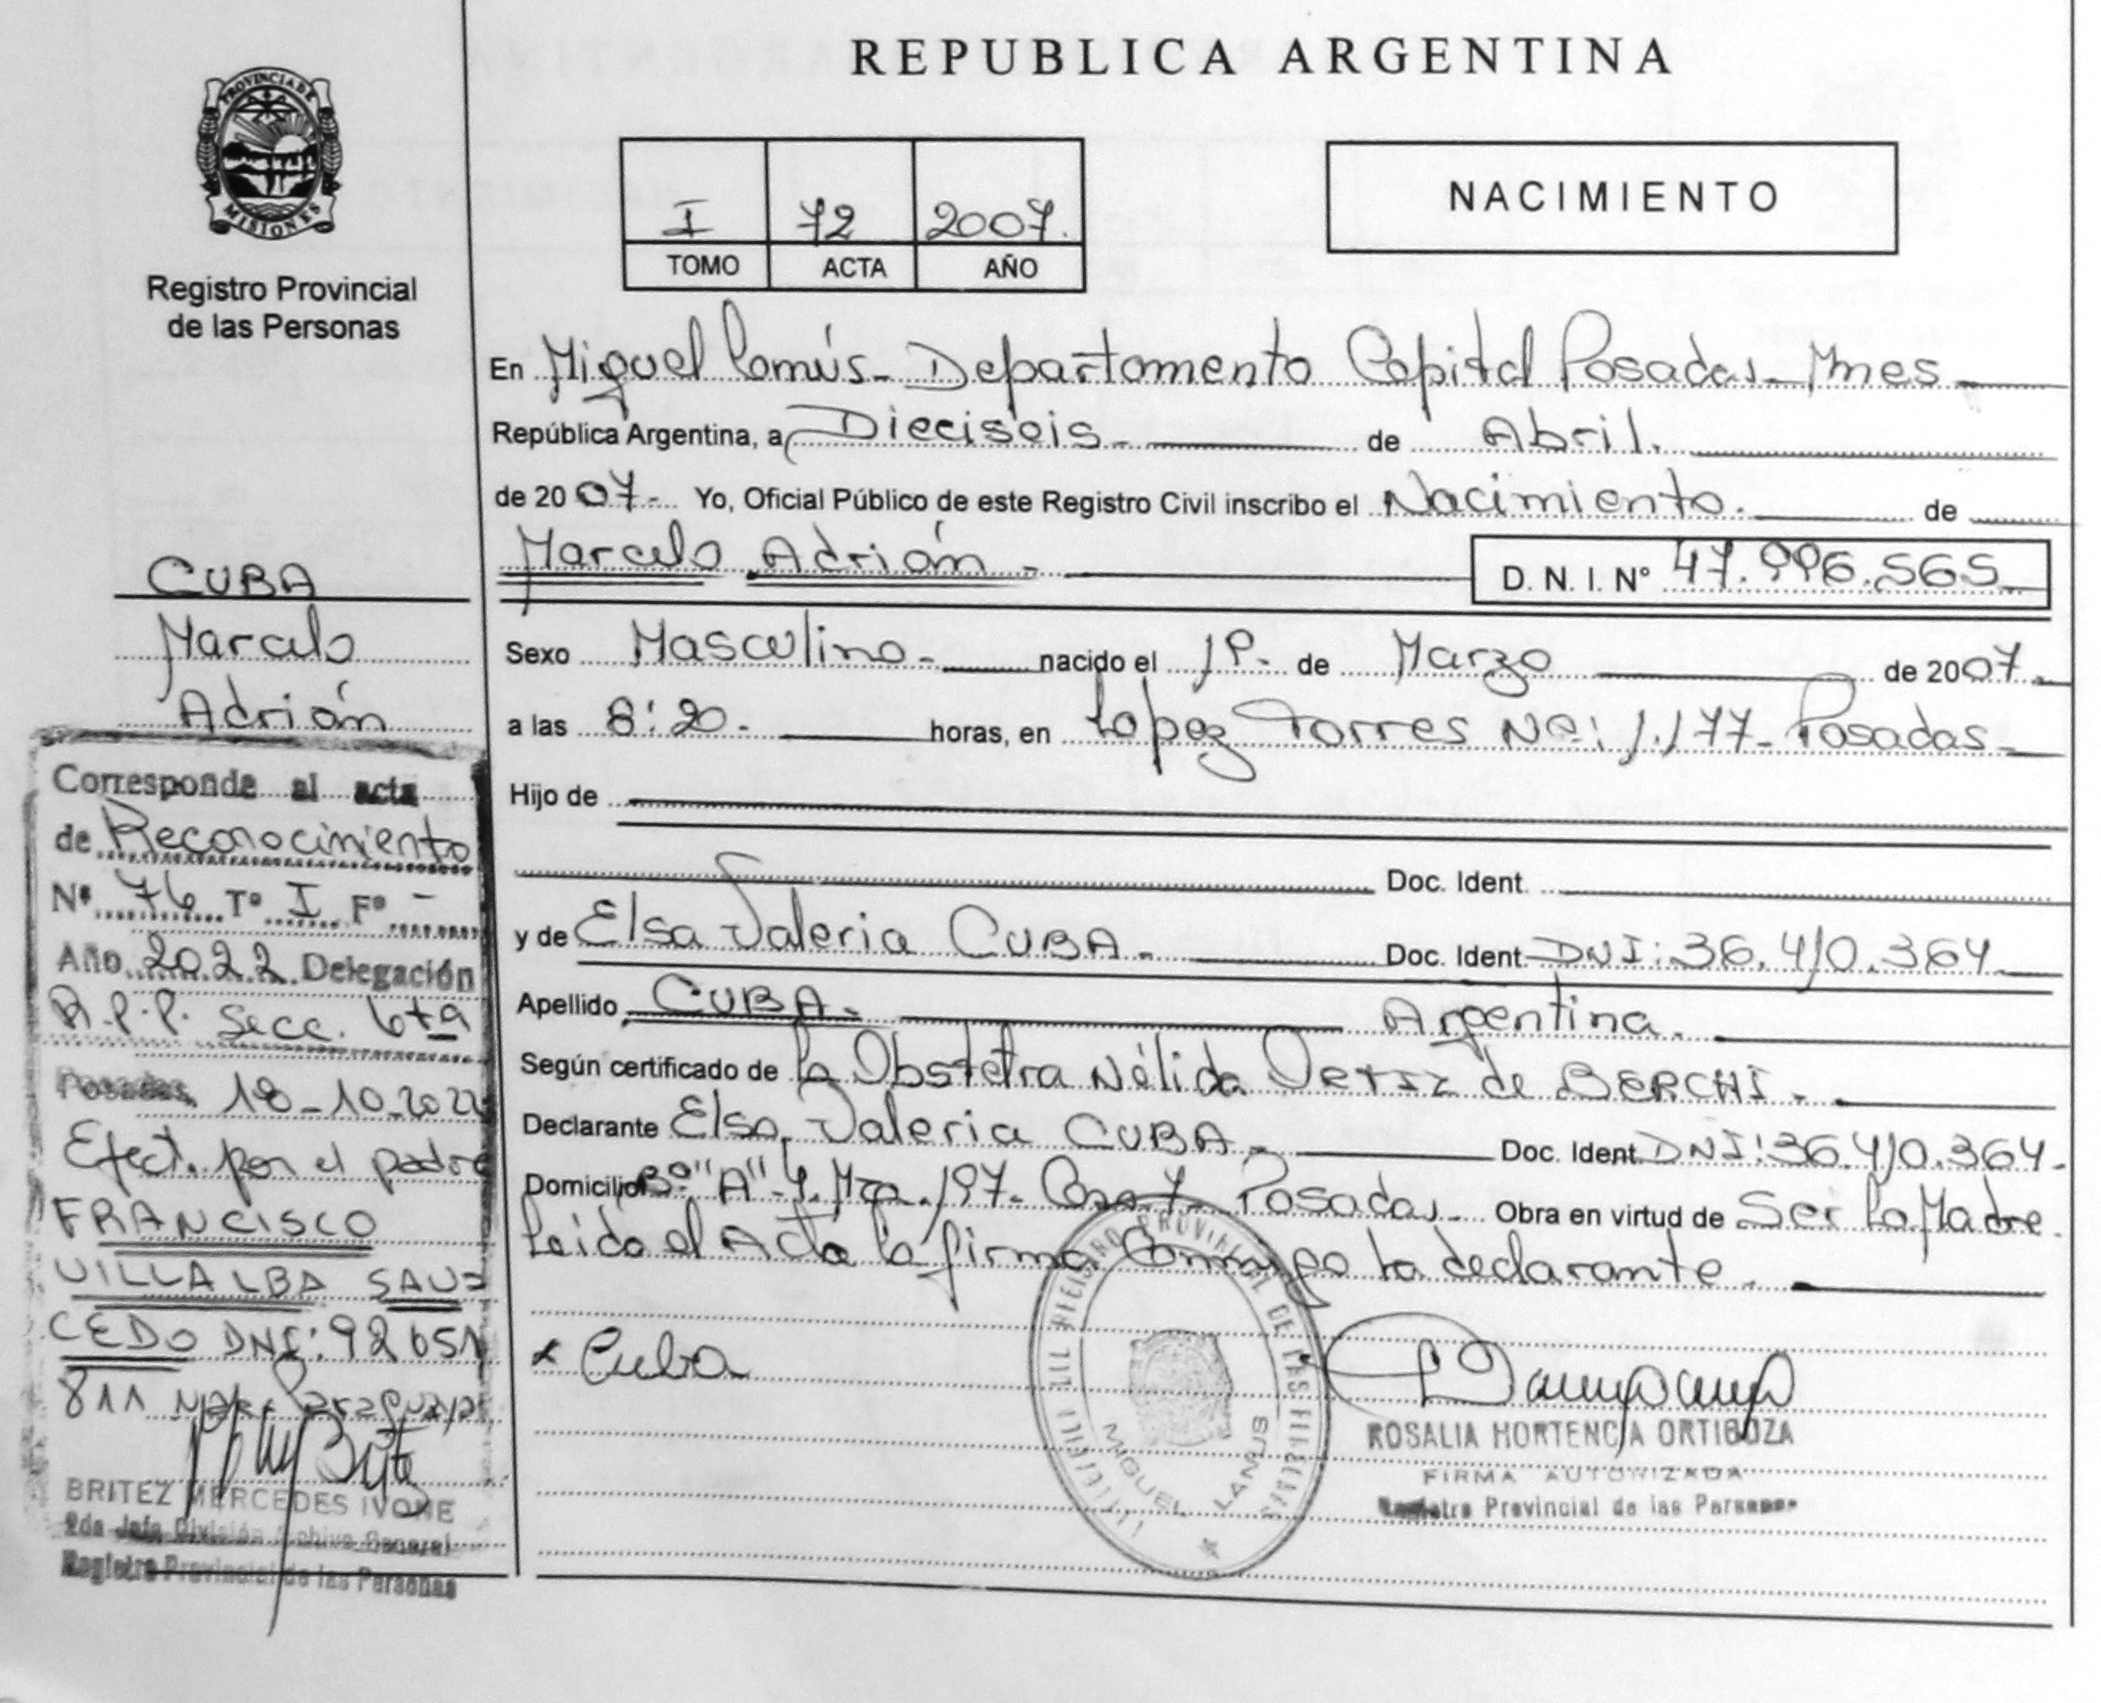 REPUBLICA ARGENTINA
PROVINCIA DE
MISIONES
Registro Provincial
de las Personas
I 72 2007.
TOMO ACTA AÑO
NACIMIENTO
En Miguel Lanús - Departamento Capital Posadas - Mnes
República Argentina, a Dieciseis - de Abril.
de 2007 - Yo, Oficial Público de este Registro Civil inscribo el Nacimiento. de
Marcelo Adrián - D. N. I. Nº 47.996.565
Sexo Masculino - nacido el 1º - de Marzo de 2007.
a las 8:20 - horas, en López Torres Nº: 1.177 - Posadas -
Hijo de
Doc. Ident.
y de Elsa Valeria CUBA - Doc. Ident. DNI: 36.410.364
Apellido CUBA - Argentina.
Según certificado de la Obstetra Nélida ORTIZ de BERCHI.
Declarante Elsa Valeria CUBA - Doc. Ident. DNI: 36.410.364.
Domicilio Bº "A" - 4. Mza. 197 - Casa 7 Posadas. Obra en virtud de Ser la Madre.
Leído el Acta la firma Conmigo la declarante.
x Cuba
ROSALIA HORTENCIA ORTIGOZA
FIRMA AUTORIZADA
Registro Provincial de las Personas
REGISTRO PROVINCIAL DE LAS PERSONAS
MIGUEL LANUS
CUBA
Marcelo
Adrián
Corresponde al acta
de Reconocimiento
Nº 76 Tº I Fº -
Año 2022 Delegación
R.P.P. Secc. 6ta
Posadas, 18-10-2022
Efect. por el padre
FRANCISCO
VILLALBA SAU=
CEDO DNI: 92651
811 Nac. Paraguaya
BRITEZ MERCEDES IVONE
2da Jefa División Archivo General
Registro Provincial de las Personas